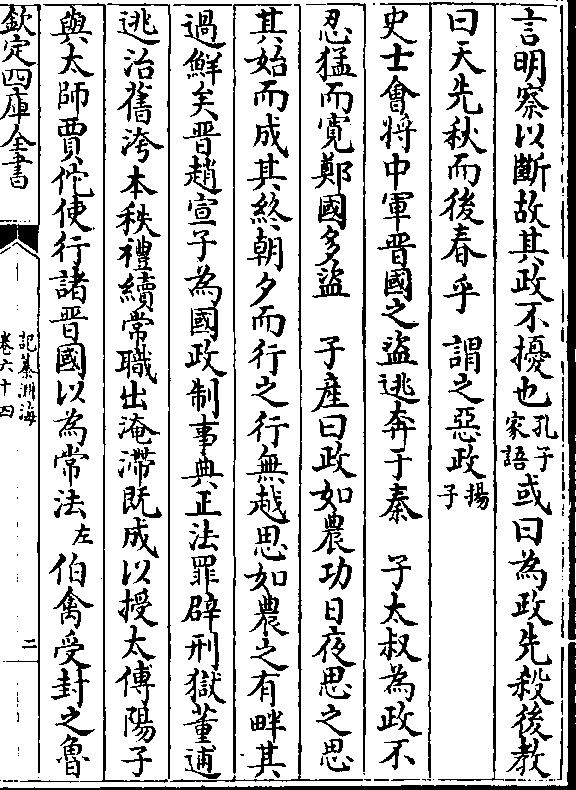 言明察以斷故其政不擾也孔子家語或曰為政先殺後教
曰天先秋而後春乎 謂之惡政揚子
史士會將中軍晉國之盜逃奔于秦 子太叔為政不
忍猛而寛鄭國多盜 子産曰政如農功日夜思之思
其始而成其終朝夕而行之行無越思如農之有畔其
過鮮矣晉趙宣子為國政制事典正法罪辟刑獄董逋
逃治舊洿本秩禮續常職出淹滯既成以授太傅陽子
與太師賈佗使行諸晉國以為常法左伯禽受封之魯
欽定四庫全書
記纂淵海
卷六十四
二